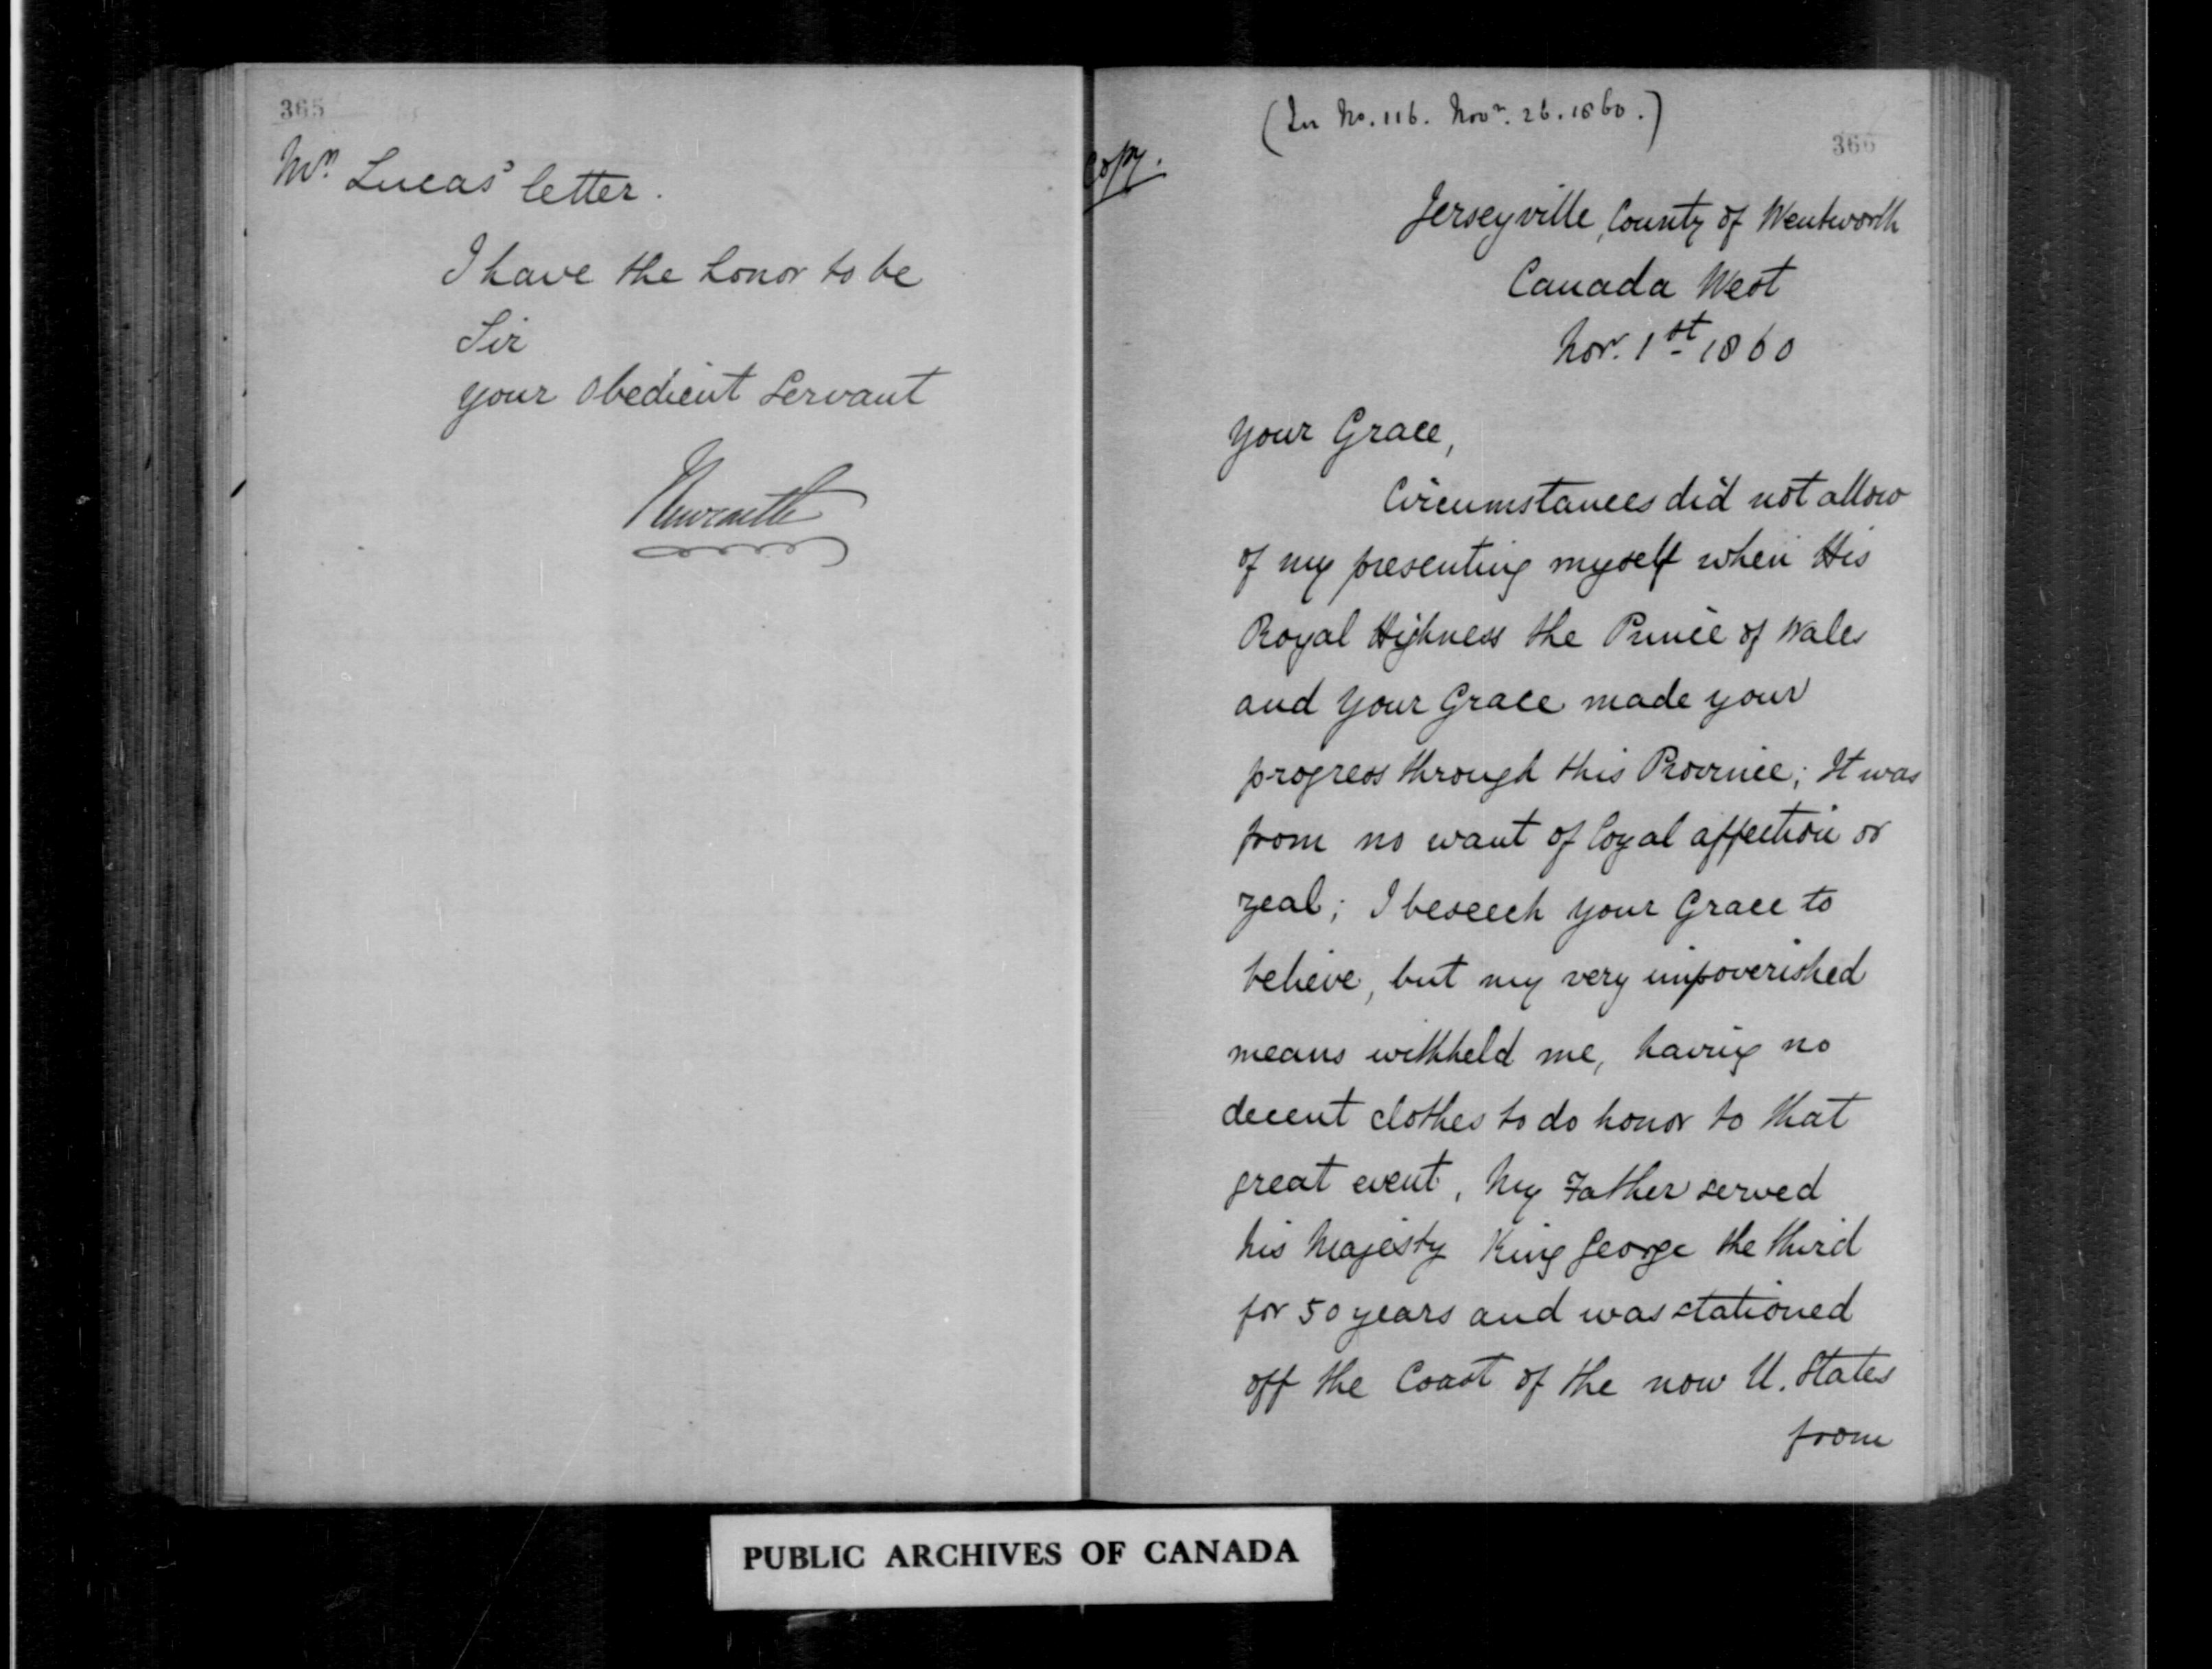 365
Mr. Lucas' letter.
I have the honor to be
Sir
your obedient servant
Newcastle
(In No. 116. Novr. 26. 1860.)
366
Copy.
Jerseyville, County of Wentworth
Canada West
Nov. 1st 1860
Your Grace,
Circumstances did not allow
of my presenting myself when His
Royal Highness the Prince of Wales
and Your Grace made your
progress through this Province; It was
from no want of loyal affection or
zeal; I beseech your Grace to
believe, but my very impoverished
means withheld me, having no
decent clothes to do honor to that
great event, My Father served
his Majesty King George the third
for 50 years and was stationed
off the Coast of the now U. States
from
PUBLIC ARCHIVES OF CANADA